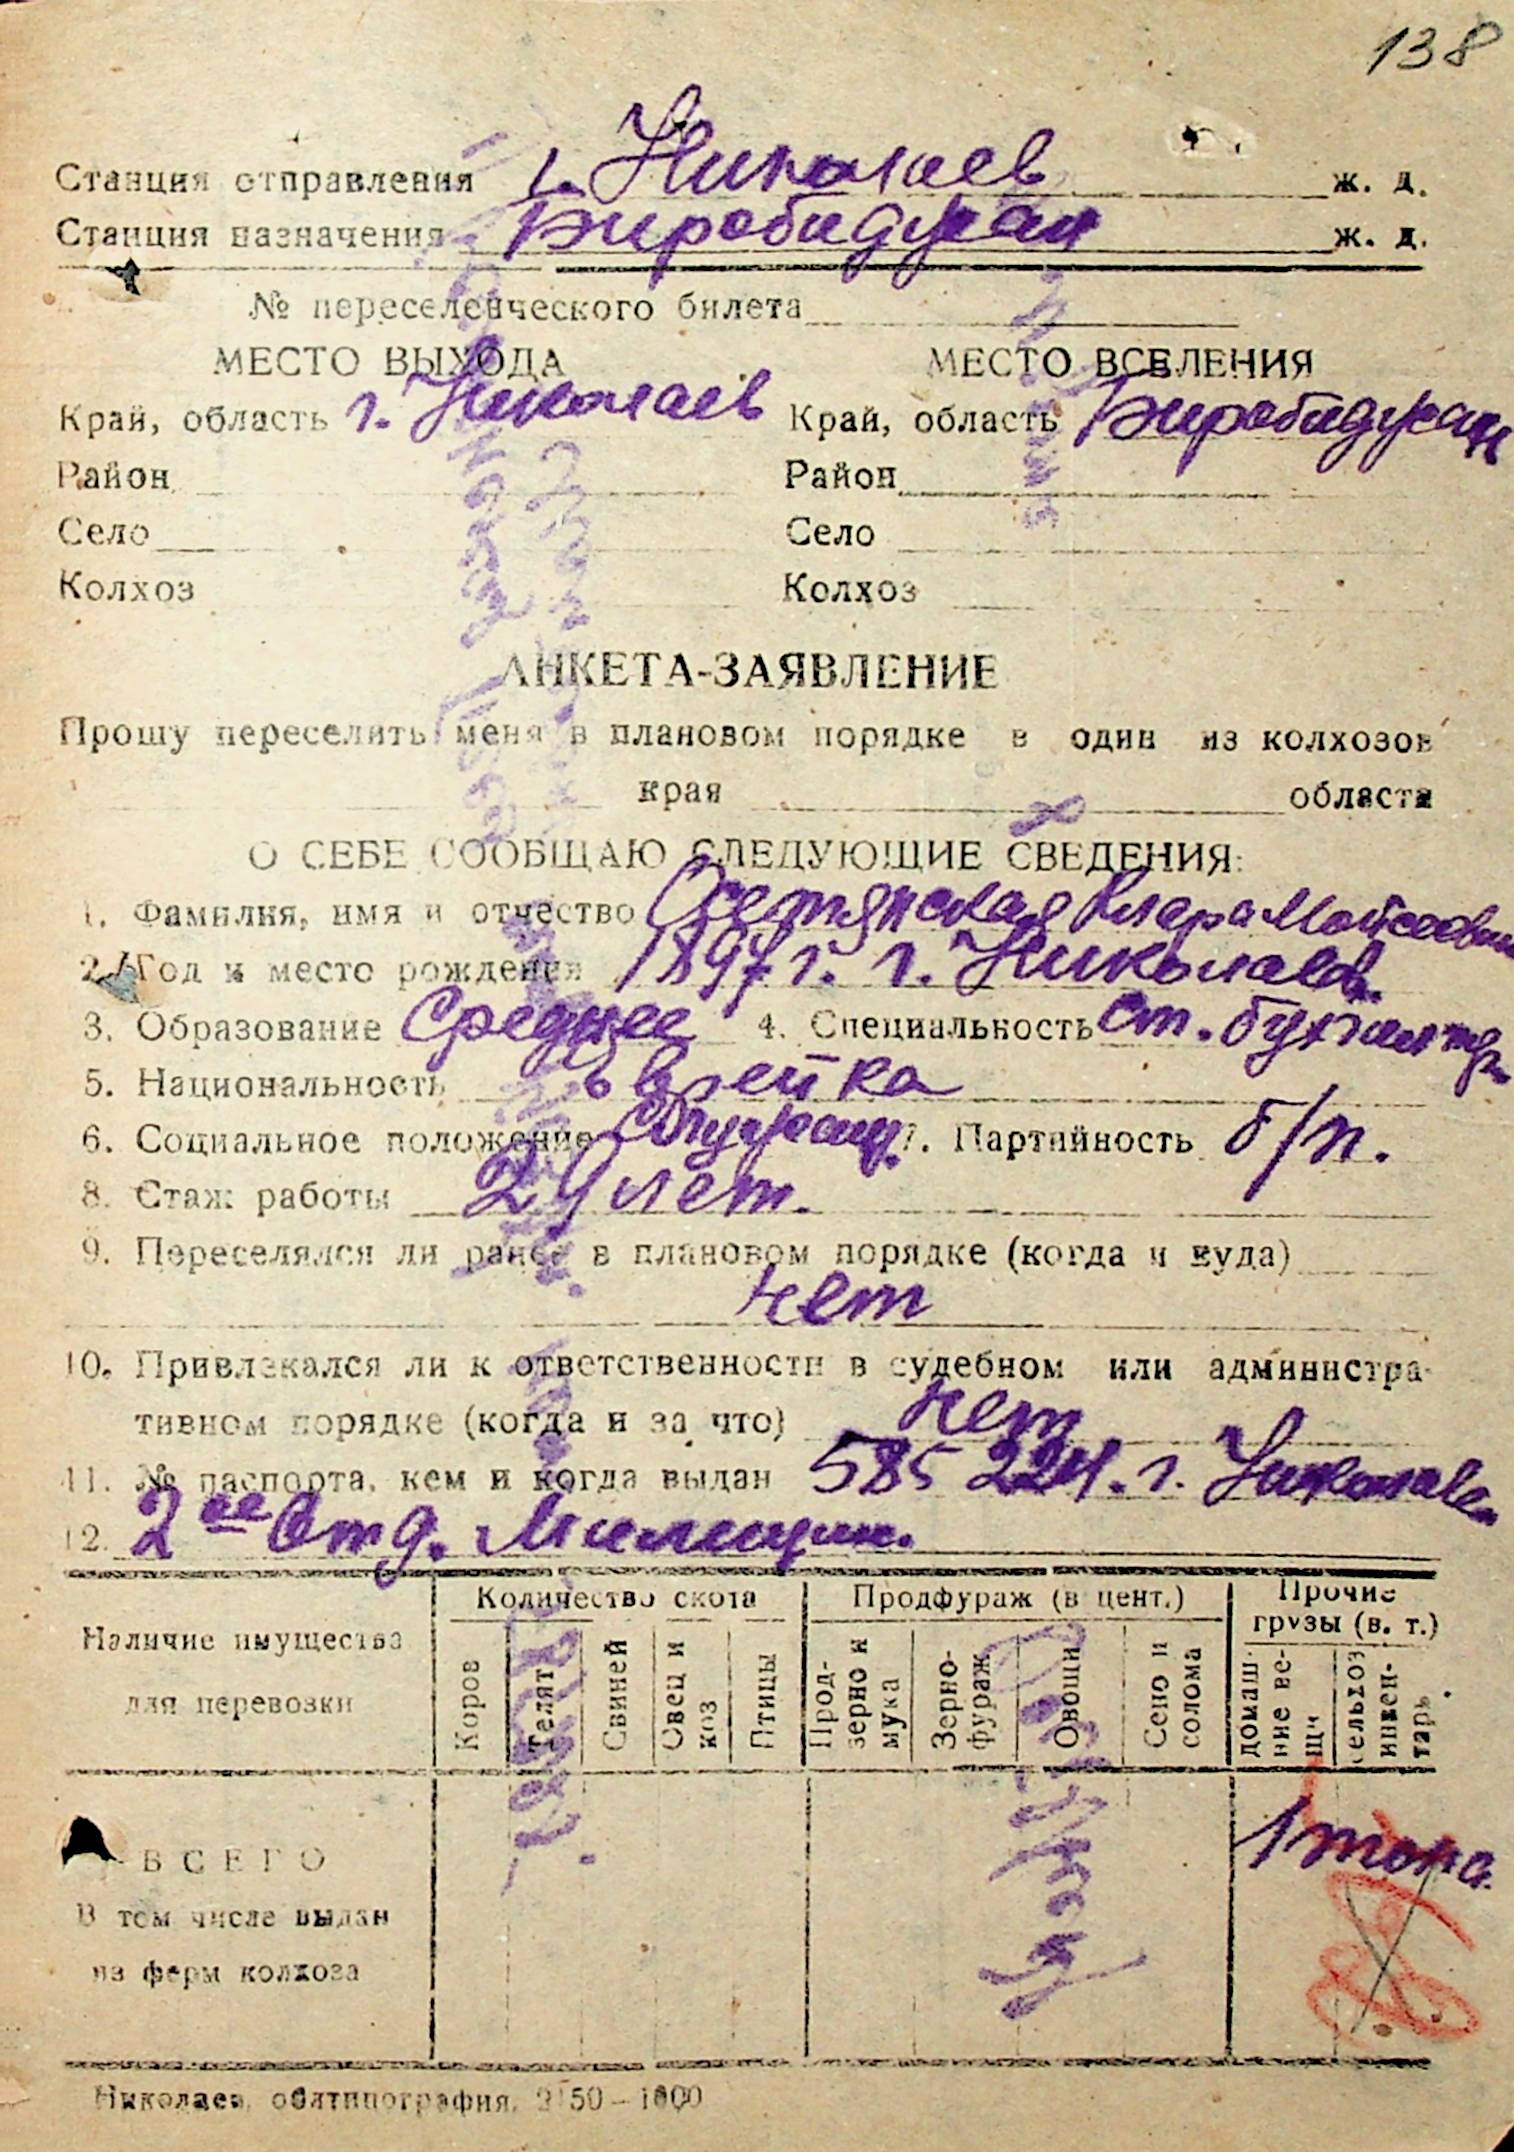 138
Станция отправления г. Николаев ж. д.
Станция назначения Биробиджан ж. д.
№ переселенческого билета
МЕСТО ВЫХОДА МЕСТО ВСЕЛЕНИЯ
Край, область г. Николаев Край, область Биробиджан
Район Район
Село Село
Колхоз Колхоз
АНКЕТА-ЗАЯВЛЕНИЕ
Прошу переселить меня в плановом порядке в один из колхозов
края области
О СЕБЕ СООБЩАЮ СЛЕДУЮЩИЕ СВЕДЕНИЯ:
1. Фамилия, имя и отчество Клара Мойсеевна
2. Год и место рождения 1897 г. г. Николаев.
3. Образование Среднее 4. Специальность ст. бухгалтер
5. Национальность Еврейка
6. Социальное положение Служащ. 7. Партийность б/п.
8. Стаж работы 29 лет.
9. Переселялся ли ранее в плановом порядке (когда и куда)
нет
10. Привлекался ли к ответственности в судебном или администра-
тивном порядке (когда и за что) нет
11. № паспорта, кем и когда выдан 585 г. Николаев
12. 2ое Отд. Милиции.
Наличие имущества для перевозки
Количество скота
Продфураж (в цент.)
Прочие грузы (в. т.)
Коров
Телят
Свиней
Овец и коз
Птицы
Прод-зерно и мука
Зерно-фураж
Овощи
Сено и солома
домаш-ние ве-щи
сельхоз инвен-тарь
ВСЕГО 1 тона.
В том числе выдан
из ферм колхоза
Николаев, облтипография, 2150—1000